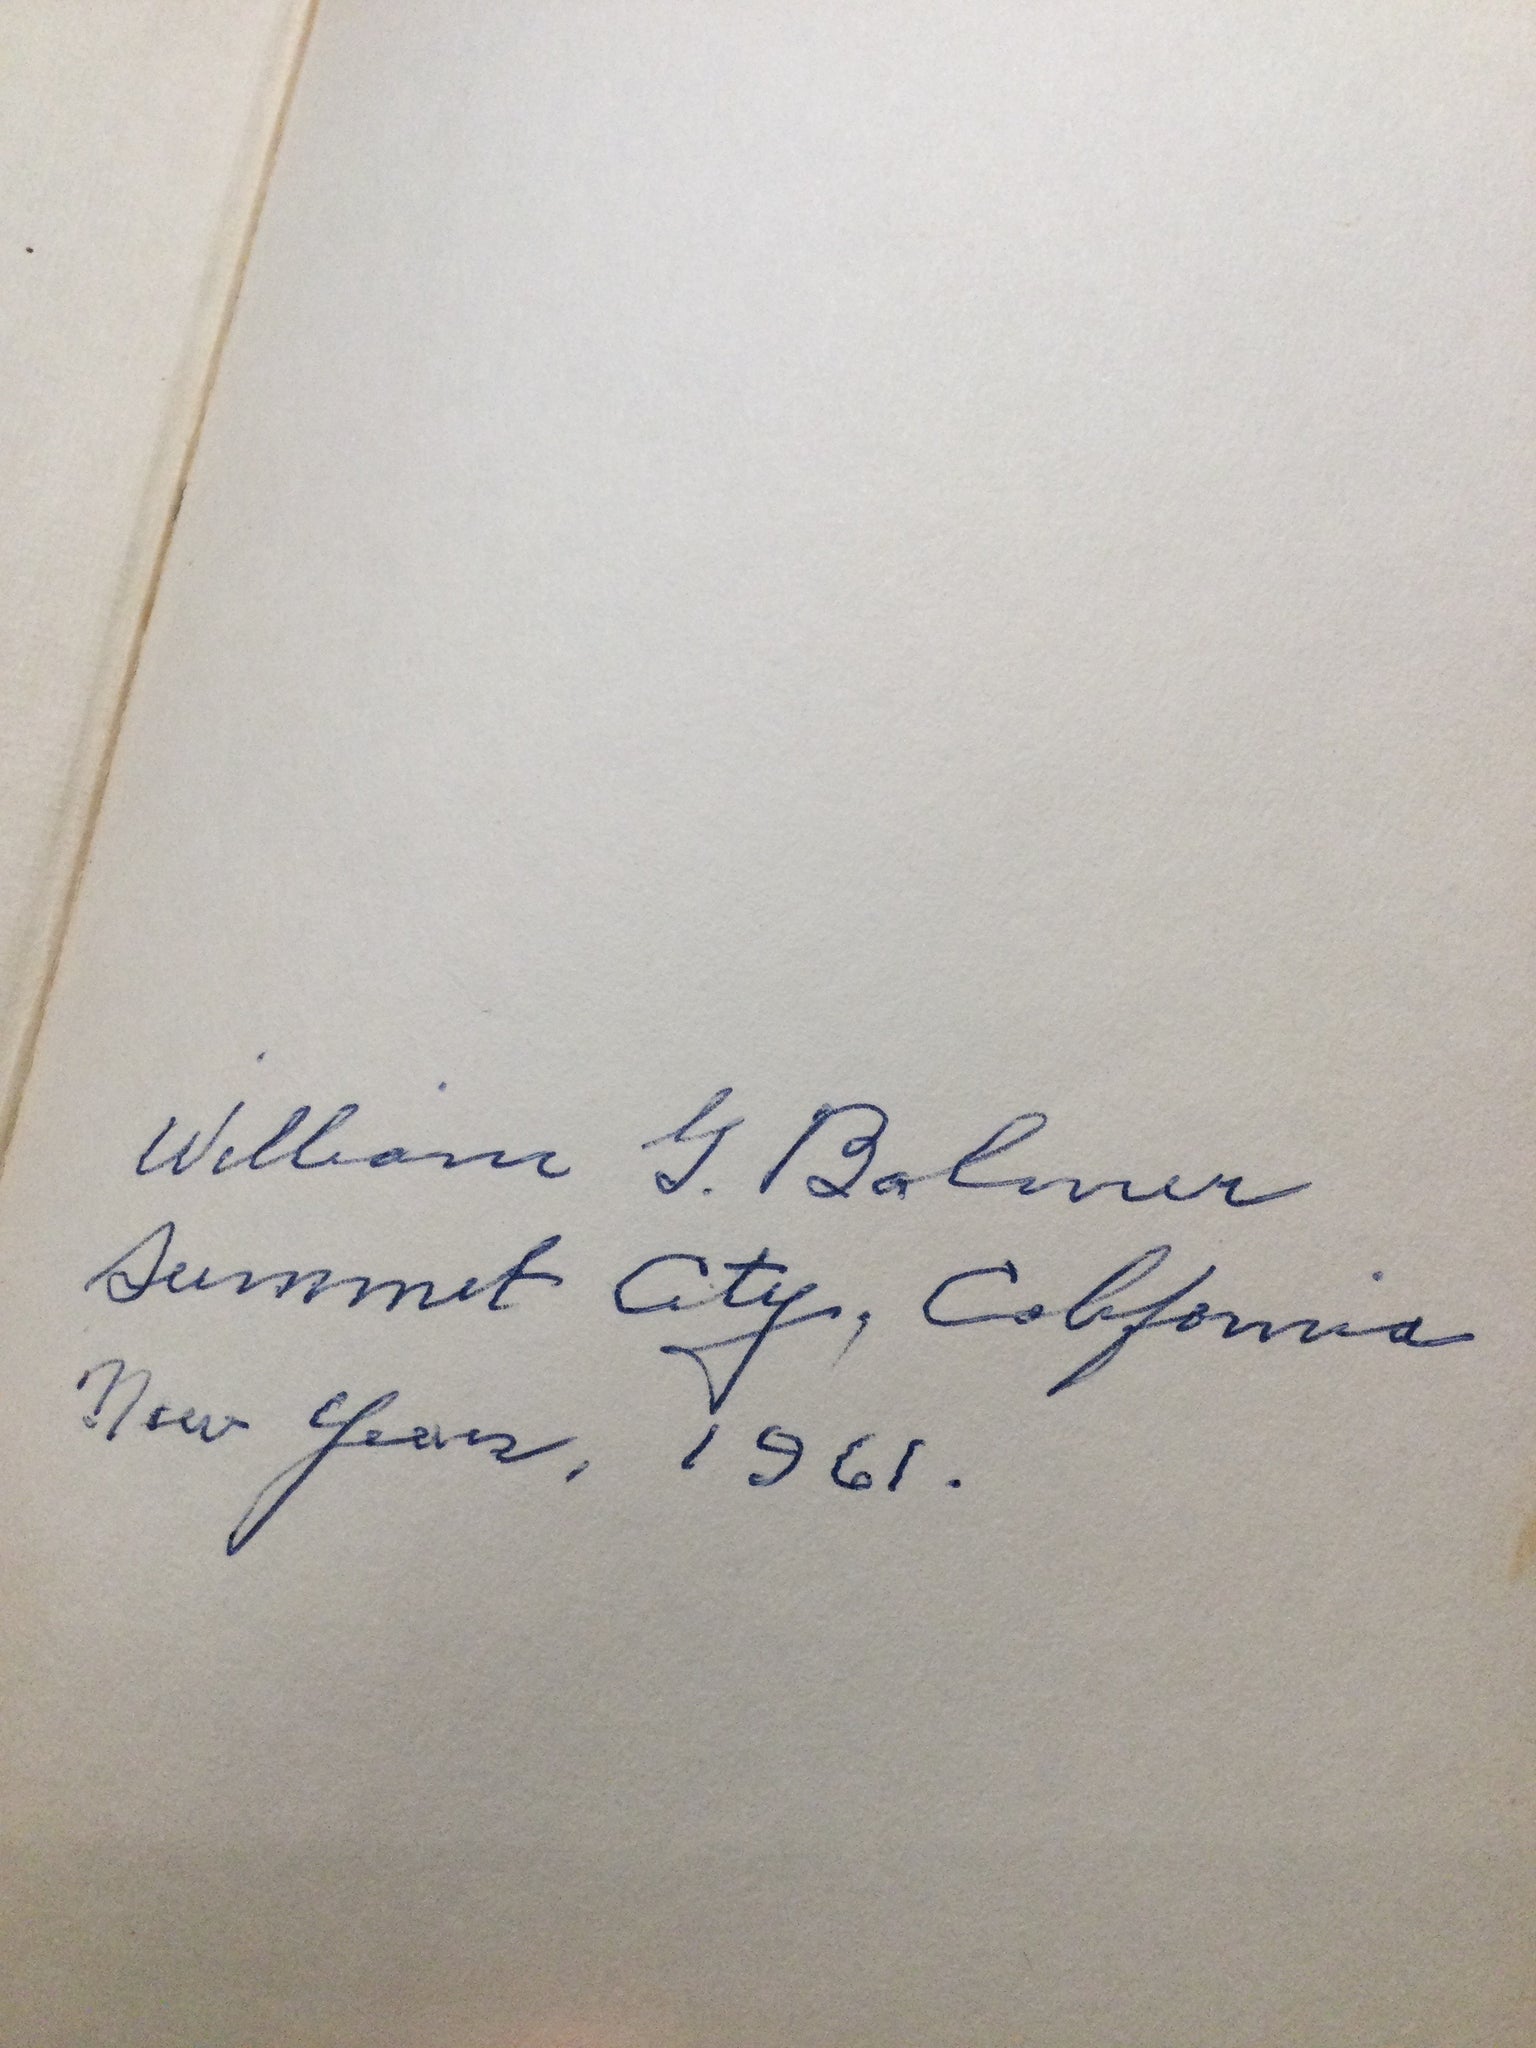 William G. Balmer
Summit City, California
New Years, 1961.